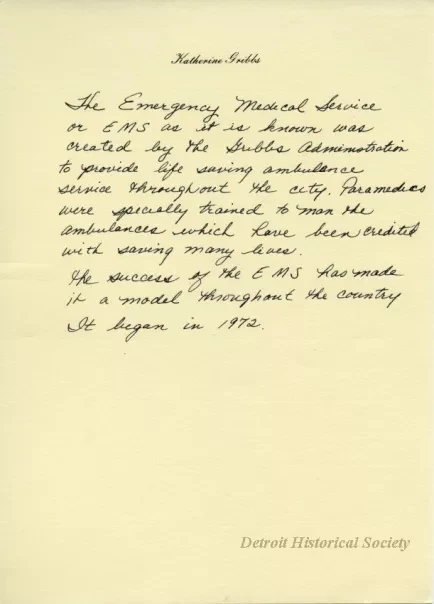 Katherine Gribbs
The Emergency Medical Service
or EMS as it is known was
created by the Gribbs Administration
to provide life saving ambulance
service throughout the city. Paramedics
were specially trained to man the
ambulances which have been credited
with saving many lives.
The success of the EMS has made
it a model throughout the country
It began in 1972.
Detroit Historical Society